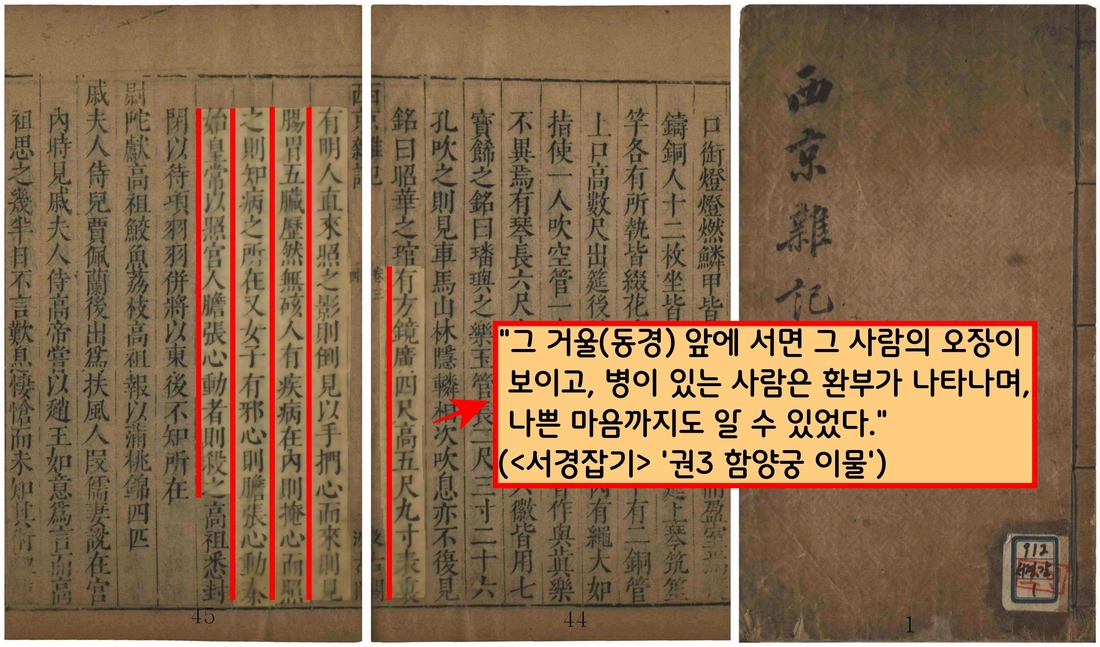 西京雜記
912
1
1
口銜燈燈燃鱗甲皆
而盈室焉
鑄銅人十二枚坐皆
筵上琴筑笙
竽各有所執皆綴花
下有二銅管
上口高數尺出筵後
內有繩大如
指使一人吹空管一
皆作與眞樂
不異焉有琴長六尺
徽皆用七
寶飾之銘曰璠璵之樂玉管長二尺三寸二十六
孔吹之則見車馬山林隱轔相次吹息亦不復見
銘曰昭華之琯有方鏡廣四尺高五尺九寸表裏
44
西京雜記
卷三
有明人直來照之影則倒見以手捫心而來則見
腸胃五臟歷然無硋人有疾病在內則掩心而照
之則知病之所在又女子有邪心則膽張心動秦
始皇常以照宮人膽張心動者則殺之高祖悉封
閉以待項羽羽併將以東後不知所在
尉佗獻高祖鮫魚荔枝高祖報以蒲桃錦四匹
戚夫人侍兒賈佩蘭後出爲扶風人叚儒妻說在宮
內時見戚夫人侍高帝嘗以趙王如意爲言而高
祖思之幾半日不言歎息悽愴而未知其術
45
"그 거울(동경) 앞에 서면 그 사람의 오장이
보이고, 병이 있는 사람은 환부가 나타나며,
나쁜 마음까지도 알 수 있었다."
(<서경잡기> '권3 함양궁 이물')